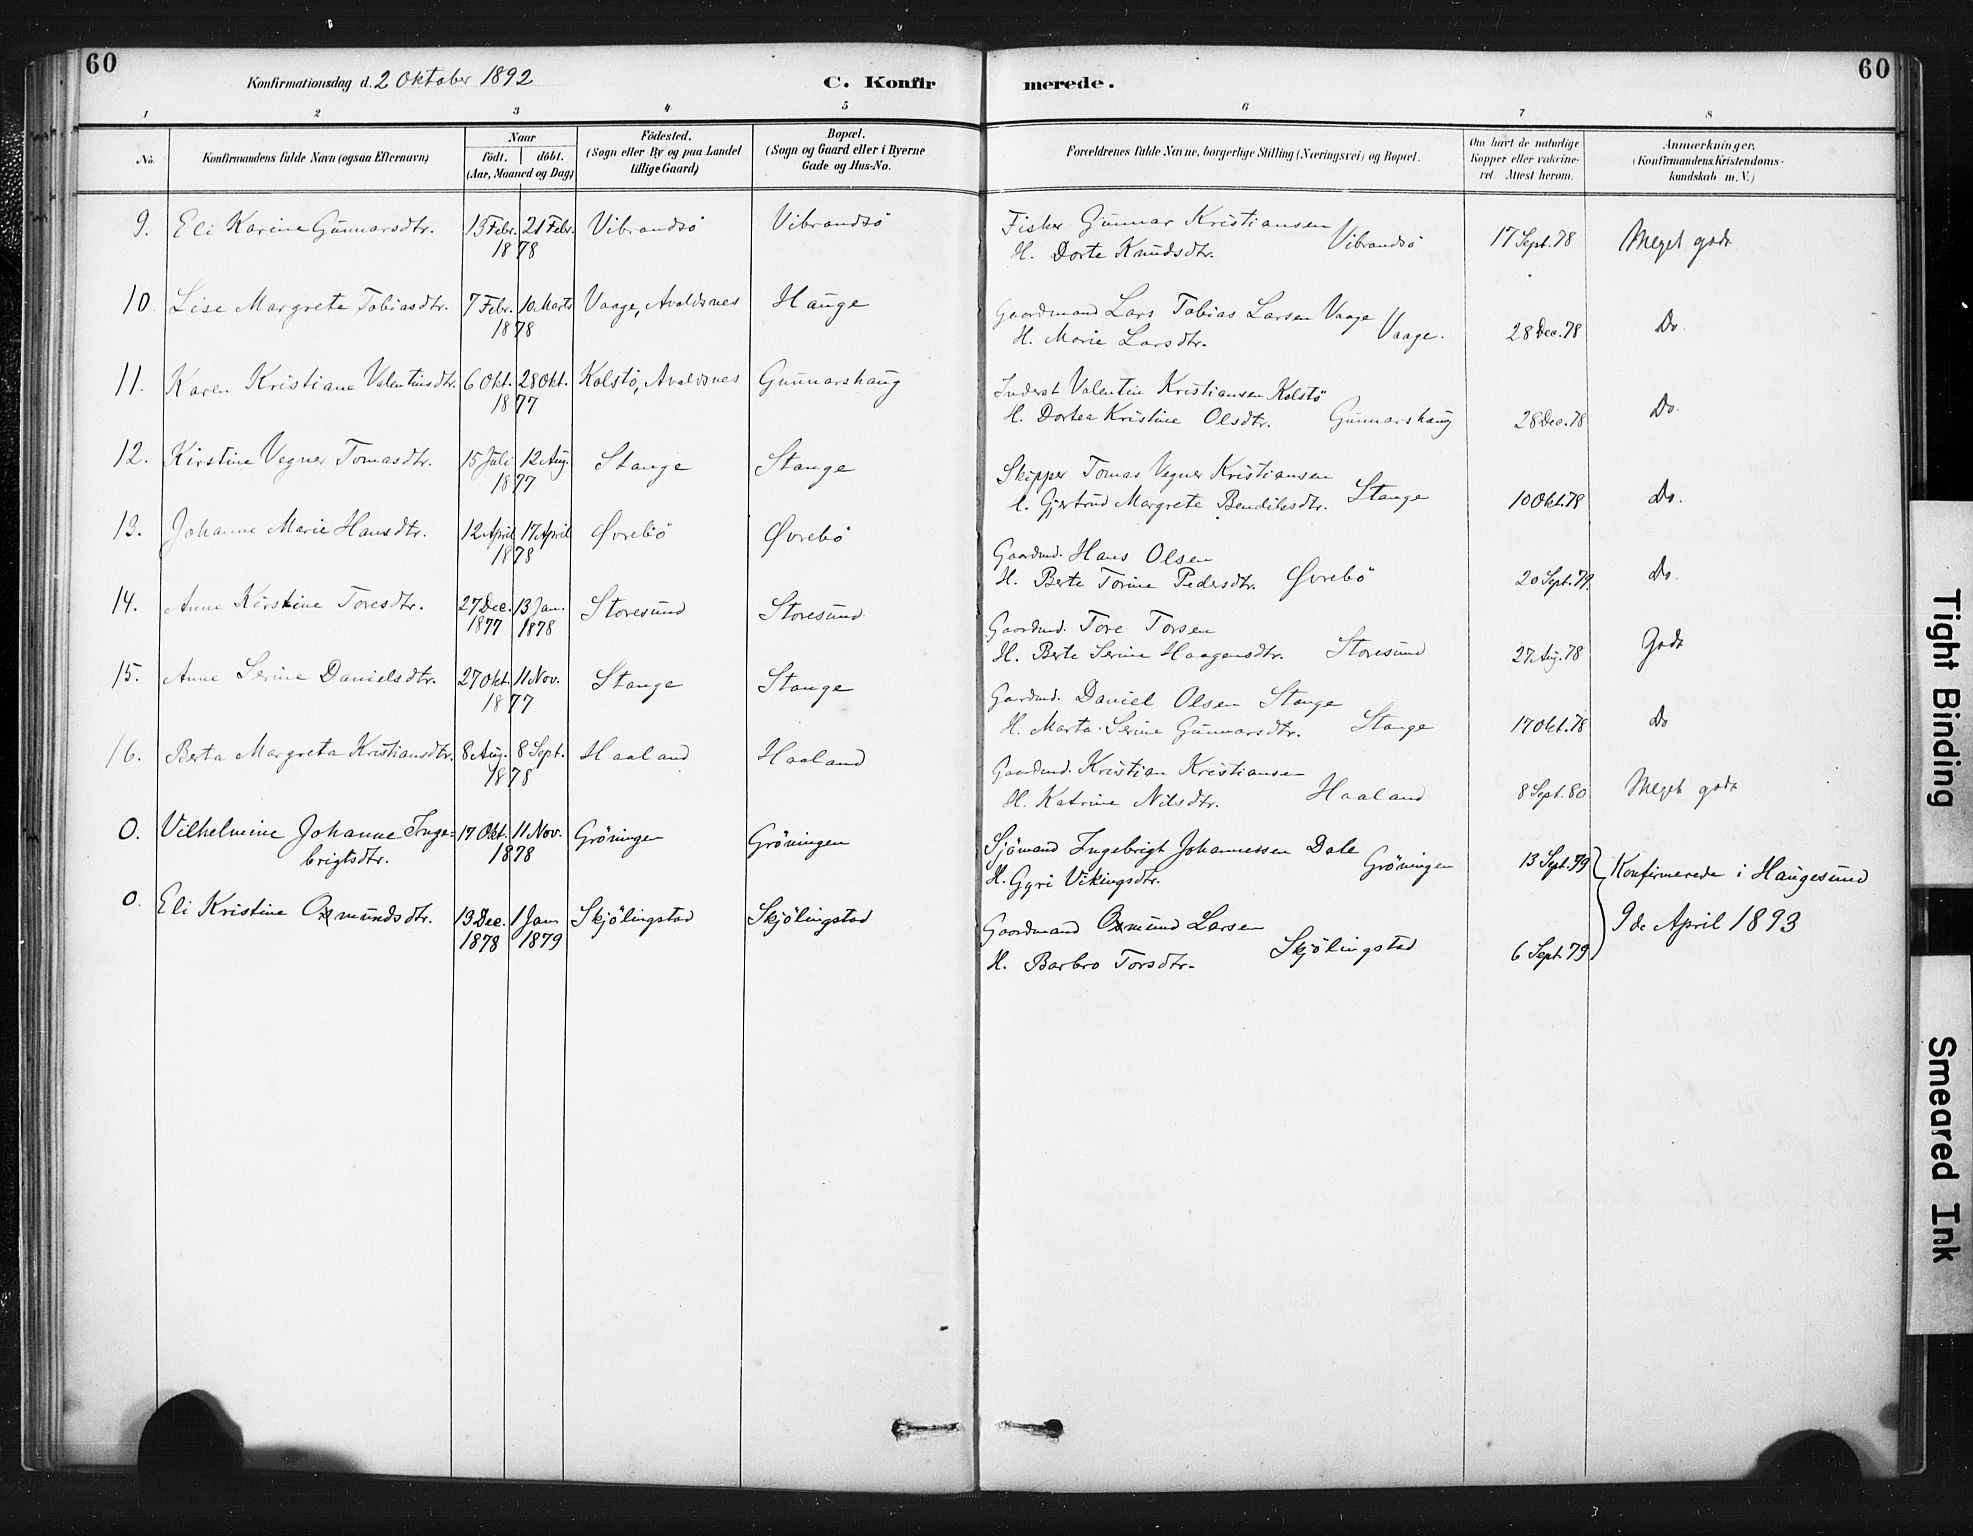 60
Konfirmationsdag d. 2 Oktober 1892
C. Konfir merede.
60
1 2 3 4 5 6 7 8
No. Konfirmandens fulde Navn (ogsaa Efternavn) Naar födt. döbt. (Aar, Maaned og Dag) Födested. (Sogn eller By og paa Landet tillige Gaard) Bopæl. (Sogn og Gaard eller i Byerne Gade og Hus-No. Forældrenes fulde Navne, borgerlige Stilling (Næringsvei) og Bopæl. Om havt de naturlige Kopper eller vakcineret. Attest herom. Anmærkninger. (Konfirmandens Kristendomskundskab m. V.)
9. Eli Karine Gunnarsdtr. 13 Febr. 21 Febr. Vibrandsö Vibrandsö Fisker Gunnar Kristiansen Vibrandsö 17 Sept. 78 Meget godt
1878 H. Dorte Knudsdtr.
10. Lise Margrete Tobiasdtr. 7 Febr. 10 Marts Vaage, Avaldsnes Hauge Gaardmand Lars Tobias Larsen Vaage Vaage. 28 Dec. 78 Do.
1878 H. Marie Larsdtr.
11. Karen Kristiane Valentinsdtr. 6 Okt. 28 Okt. Kolstö, Avaldsnes Gunnarshaug Inderst Valentin Kristiansen Kolstö
1877 H. Dortea Kristine Olsdtr. Gunnarshaug 28 Dec. 78 Do.
12. Kirstine Vegner Tomasdtr. 15 Juli 12 Aug. Stange Stange Skipper Tomas Vegner Kristiansen
1877 H. Gjertrud Margrete Bendiksdtr. Stange 10 Okt. 78 Do.
13. Johanne Marie Hansdtr. 12 April 17 April Øvrebö Øvrebö Gaardmd. Hans Olsen
1878 H. Berte Torine Pedersdtr. Øvrebö 20 Sept. 79. Do.
14. Anne Kirstine Toresdtr. 27 Dec. 13 Jan. Storesund Storesund Gaardmd. Tore Torsen
1877 1878 H. Berte Serine Haagensdtr. Storesund 27 Aug. 78 Godt
15. Anne Serine Danielsdtr. 27 Okt. 11 Nov. Stange Stange Gaardmd. Daniel Olsen Stange
1877 H. Marta Serine Gunnarsdtr. Stange 17 Okt. 78 Do
16. Berta Margreta Kristiansdtr. 8 Aug. 8 Sept. Haaland Haaland Gaardmd. Kristian Kristiansen
1878 H. Katrine Nilsdtr. Haaland 8 Sept. 80 Meget godt
0. Vilhelmine Johanne Inge- 17 Okt. 11 Nov. Gröningen Gröningen Sjömand Ingebrigt Johannessen Dale Gröningen 13 Sept. 79 Konfirmerede i Haugesund
brigtsdtr. 1878 H. Gyri Vikingsdtr.
0. Eli Kristine Osmundsdtr. 13 Dec. 1 Jan Skjölingstad Skjölingstad Gaardmand Osmund Larsen 9de April 1893
1878 1879 H. Barbro Torsdtr. Skjölingstad 6 Sept. 79
Tight Binding
Smeared Ink